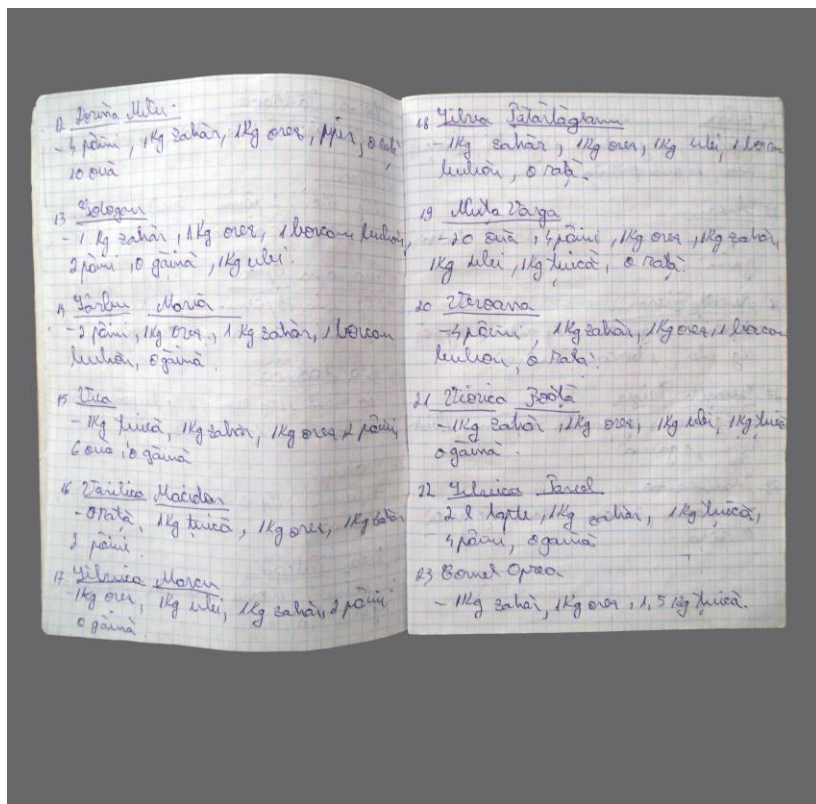 12 Dorina Mitu.
- 4 pâini, 1Kg zahăr, 1Kg orez, piper, o rață
10 ouă
13 Gologan
- 1 Kg zahăr, 1Kg orez, 1 borcan bulion,
2 pâini, o găină, 1Kg ulei.
14 Sârbu Maria.
- 2 pâini, 1Kg orez, 1 Kg zahăr, 1 borcan
bulion, o găină.
15 Vica
- 1Kg țuică, 1Kg zahăr, 1Kg orez 2 pâini,
6 ouă, o găină
16 Vasilica Macidon
- o rață, 1Kg țuică, 1Kg orez, 1Kg zahăr
2 pâini.
17. Marcu
- 1Kg orez, 1Kg ulei, 1Kg zahăr, 2 pâini
o găină.
18
- 1Kg zahăr, 1Kg orez, 1Kg ulei, 1 borcan
bulion, o rață.
19 Varga
- 20 ouă, 4 pâini, 1Kg orez, 1Kg zahăr,
1Kg ulei, 1Kg țuică, o rață.
20
- 4 pâini, 1Kg zahăr, 1Kg orez, 1 borcan
bulion, o rață.
21 Viorica
- 1Kg zahăr, 1Kg orez, 1Kg ulei, 1Kg țuică
o găină.
22
2 l lapte, 1Kg zahăr, 1Kg țuică,
4 pâini, o găină
23 Cornel Oprea
- 1Kg zahăr, 1Kg orez, 1,5 Kg țuică.